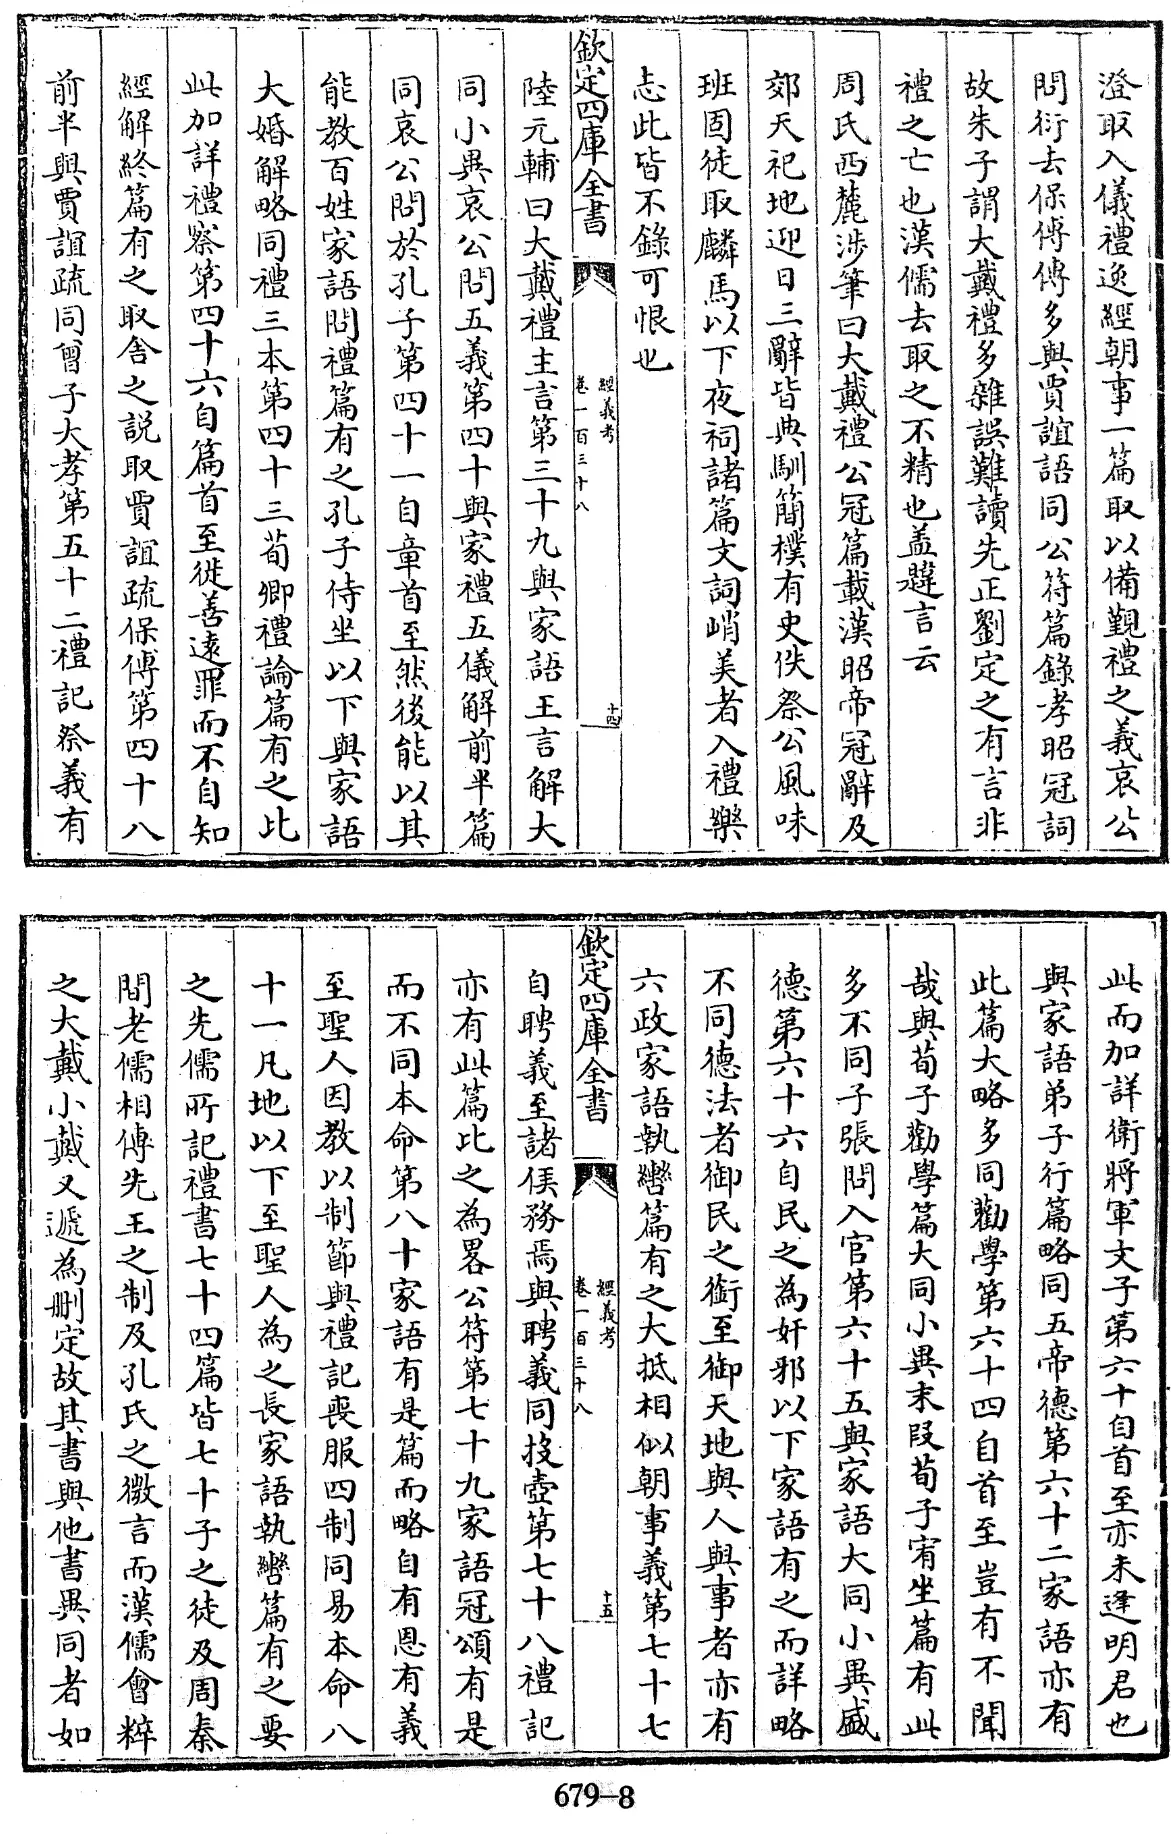 澄取入儀禮逸經朝事一篇取以備覲禮之義哀公
問衍去保傅傅多與賈誼語同公符篇錄孝昭冠詞
故朱子謂大戴禮多雜誤難讀先正劉定之有言非
禮之亡也漢儒去取之不精也盖韙言云
周氏西麓涉筆曰大戴禮公冠篇載漢昭帝冠辭及
郊天祀地迎日三辭皆典馴簡樸有史佚祭公風味
班固徒取麟馬以下夜祠諸篇文詞峭美者入禮樂
志此皆不錄可恨也
欽定四庫全書
經義考
卷一百三十八
十四
陸元輔曰大戴禮主言第三十九與家語王言解大
同小異哀公問五義第四十與家禮五儀解前半篇
同哀公問於孔子第四十一自章首至然後能以其
能教百姓家語問禮篇有之孔子侍坐以下與家語
大婚解略同禮三本第四十三荀卿禮論篇有之此
此加詳禮察第四十六自篇首至徙善遠罪而不自知
經解終篇有之取舍之説取賈誼疏保傅第四十八
前半與賈誼疏同曾子大孝第五十二禮記祭義有
此而加詳衛將軍文子第六十自首至亦未逢明君也
與家語弟子行篇略同五帝德第六十二家語亦有
此篇大略多同勸學第六十四自首至豈有不聞
哉與荀子勸學篇大同小異末段荀子宥坐篇有此
多不同子張問入官第六十五與家語大同小異盛
德第六十六自民之為奸邪以下家語有之而詳略
不同德法者御民之銜至御天地與人與事者亦有
六政家語執轡篇有之大抵相似朝事義第七十七
欽定四庫全書
經義考
卷一百三十八
十五
自聘義至諸侯務焉與聘義同投壺第七十八禮記
亦有此篇比之為畧公符第七十九家語冠頌有是
而不同本命第八十家語有是篇而略自有恩有義
至聖人因教以制節與禮記喪服四制同易本命八
十一凡地以下至聖人為之長家語執轡篇有之要
之先儒所記禮書七十四篇皆七十子之徒及周秦
間老儒相傳先王之制及孔氏之微言而漢儒會粹
之大戴小戴又遞為刪定故其書與他書異同者如
679-8